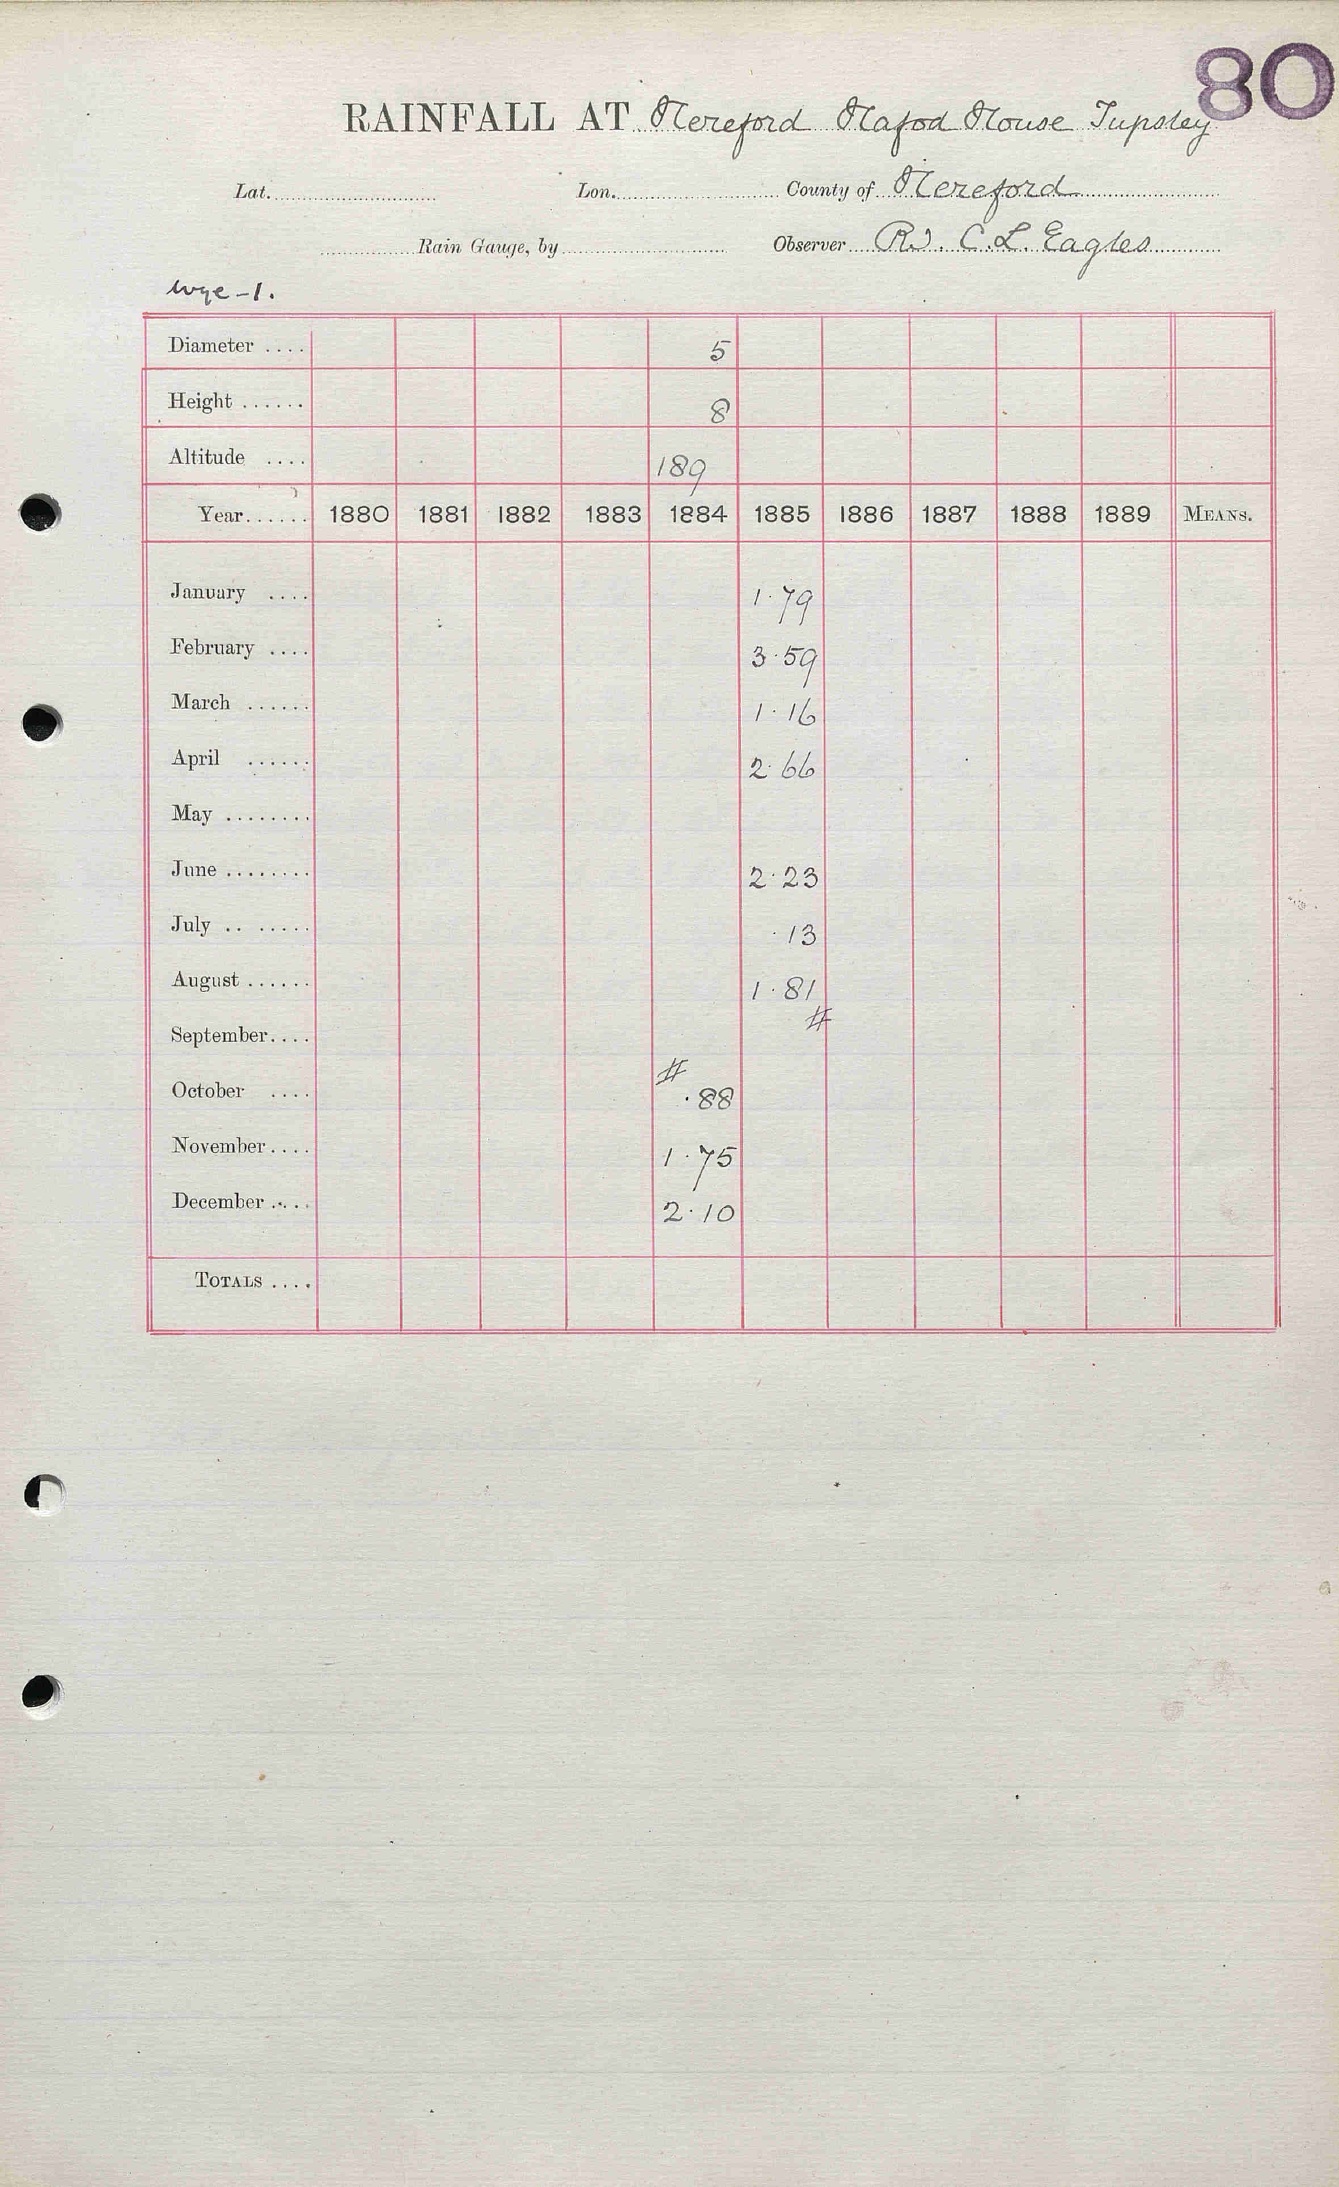 80
RAINFALL AT Hereford Hafod House Tupsley
Lat. Lon. County of Hereford
Rain Gauge, by Observer Rev. C. L. Eagles
Wye-1.
Diameter .... 5
Height ...... 8
Altitude .... 189
Year ...... 1880 1881 1882 1883 1884 1885 1886 1887 1888 1889 MEANS.
January .... 1.79
February .... 3.59
March ...... 1.16
April ...... 2.66
May ........
June ........ 2.23
July .. ..... .13
August ...... 1.81
#
September....
#
October .... .88
November.... 1.75
December .... 2.10
TOTALS ....